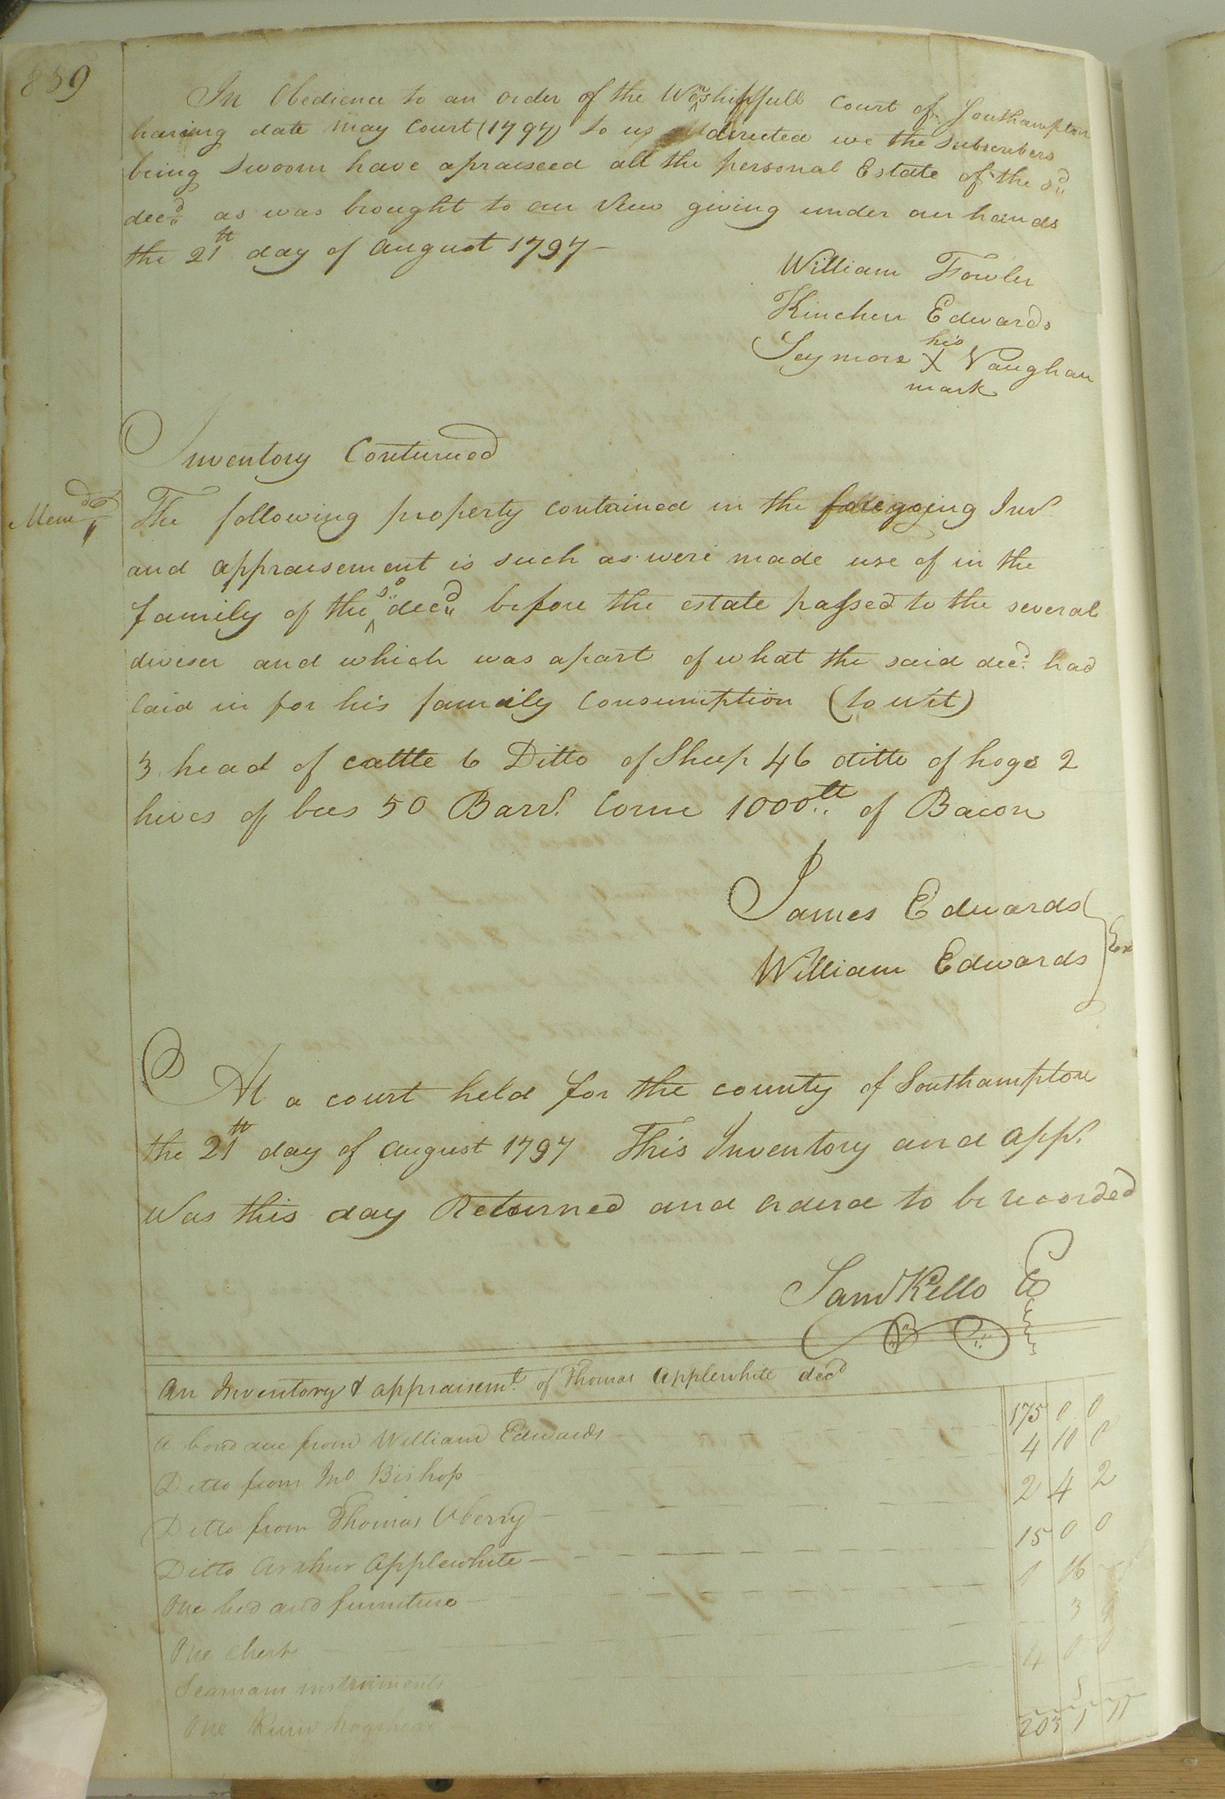 859
In Obedience to an order of the Worshipfull Court of Southampton
having date May Court (1797) to us directed we the subscribers
being Sworn have apraised all the personal Estate of the sd
decd as was brought to our View giving under our hands
the 21th day of August 1797
William Fowler
Kinchen Edwards
his
Seymore X Vaughan
mark
Inventory Continued
Memd The following property contained in the foregoing Inv
and appraisement is such as were made use of in the
family of the sd decd before the estate passed to the several
diviser and which was apart of what the said decd had
laid in for his family Consumption (to wit)
3 head of cattle 6 Ditto of Sheep 46 ditto of hogs 2
hives of bees 50 Barrl Corne 1000tt of Bacon
James Edwards
William Edwards } Exr
At a court held for the county of Southampton
the 21th day of August 1797 This Inventory and appt
Was this day Returned and ordered to be recorded
Saml Kello
An Inventory & appraisemt of Thomas Applewhite decd
A bond due from William Edwards 175 0 0
Ditto from Jno Bishop 4 10 0
Ditto from Thomas Uberry 2 4 2
Ditto Arthur Applewhite 15 0 0
One bed and furniture 1 16
One chest 3
Seamans instruments 4 0 0
One Rum hogshead 5
203 1 11